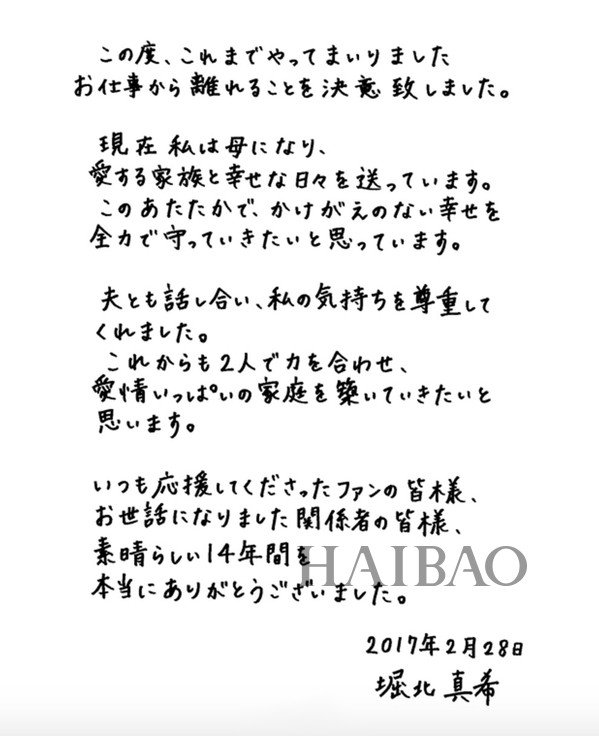 この度、これまでやってまいりました
お仕事から離れることを決意致しました。
現在私は母になり、
愛する家族と幸せな日々を送っています。
このあたたかで、かけがえのない幸せを
全力で守っていきたいと思っています。
夫とも話し合い、私の気持ちを尊重して
くれました。
これからも2人で力を合わせ、
愛情いっぱいの家庭を築いていきたいと
思います。
いつも応援してくださったファンの皆様、
お世話になりました関係者の皆様、
素晴らしい14年間を
HAIBAO
本当にありがとうございました。
2017年2月28日
堀北真希